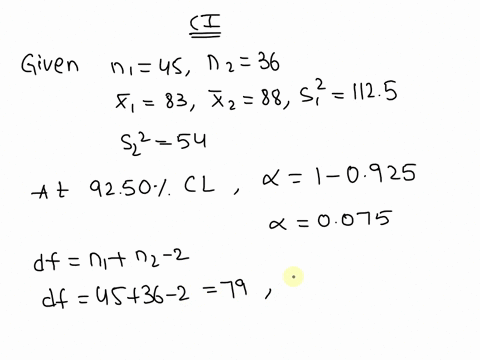 CI
Given n₁=45, n₂=36
x̄₁=83, x̄₂=88, S₁²=112.5
S₂²=54
At 92.50% CL, α=1-0.925
α=0.075
df=n₁+n₂-2
df=45+36-2=79,